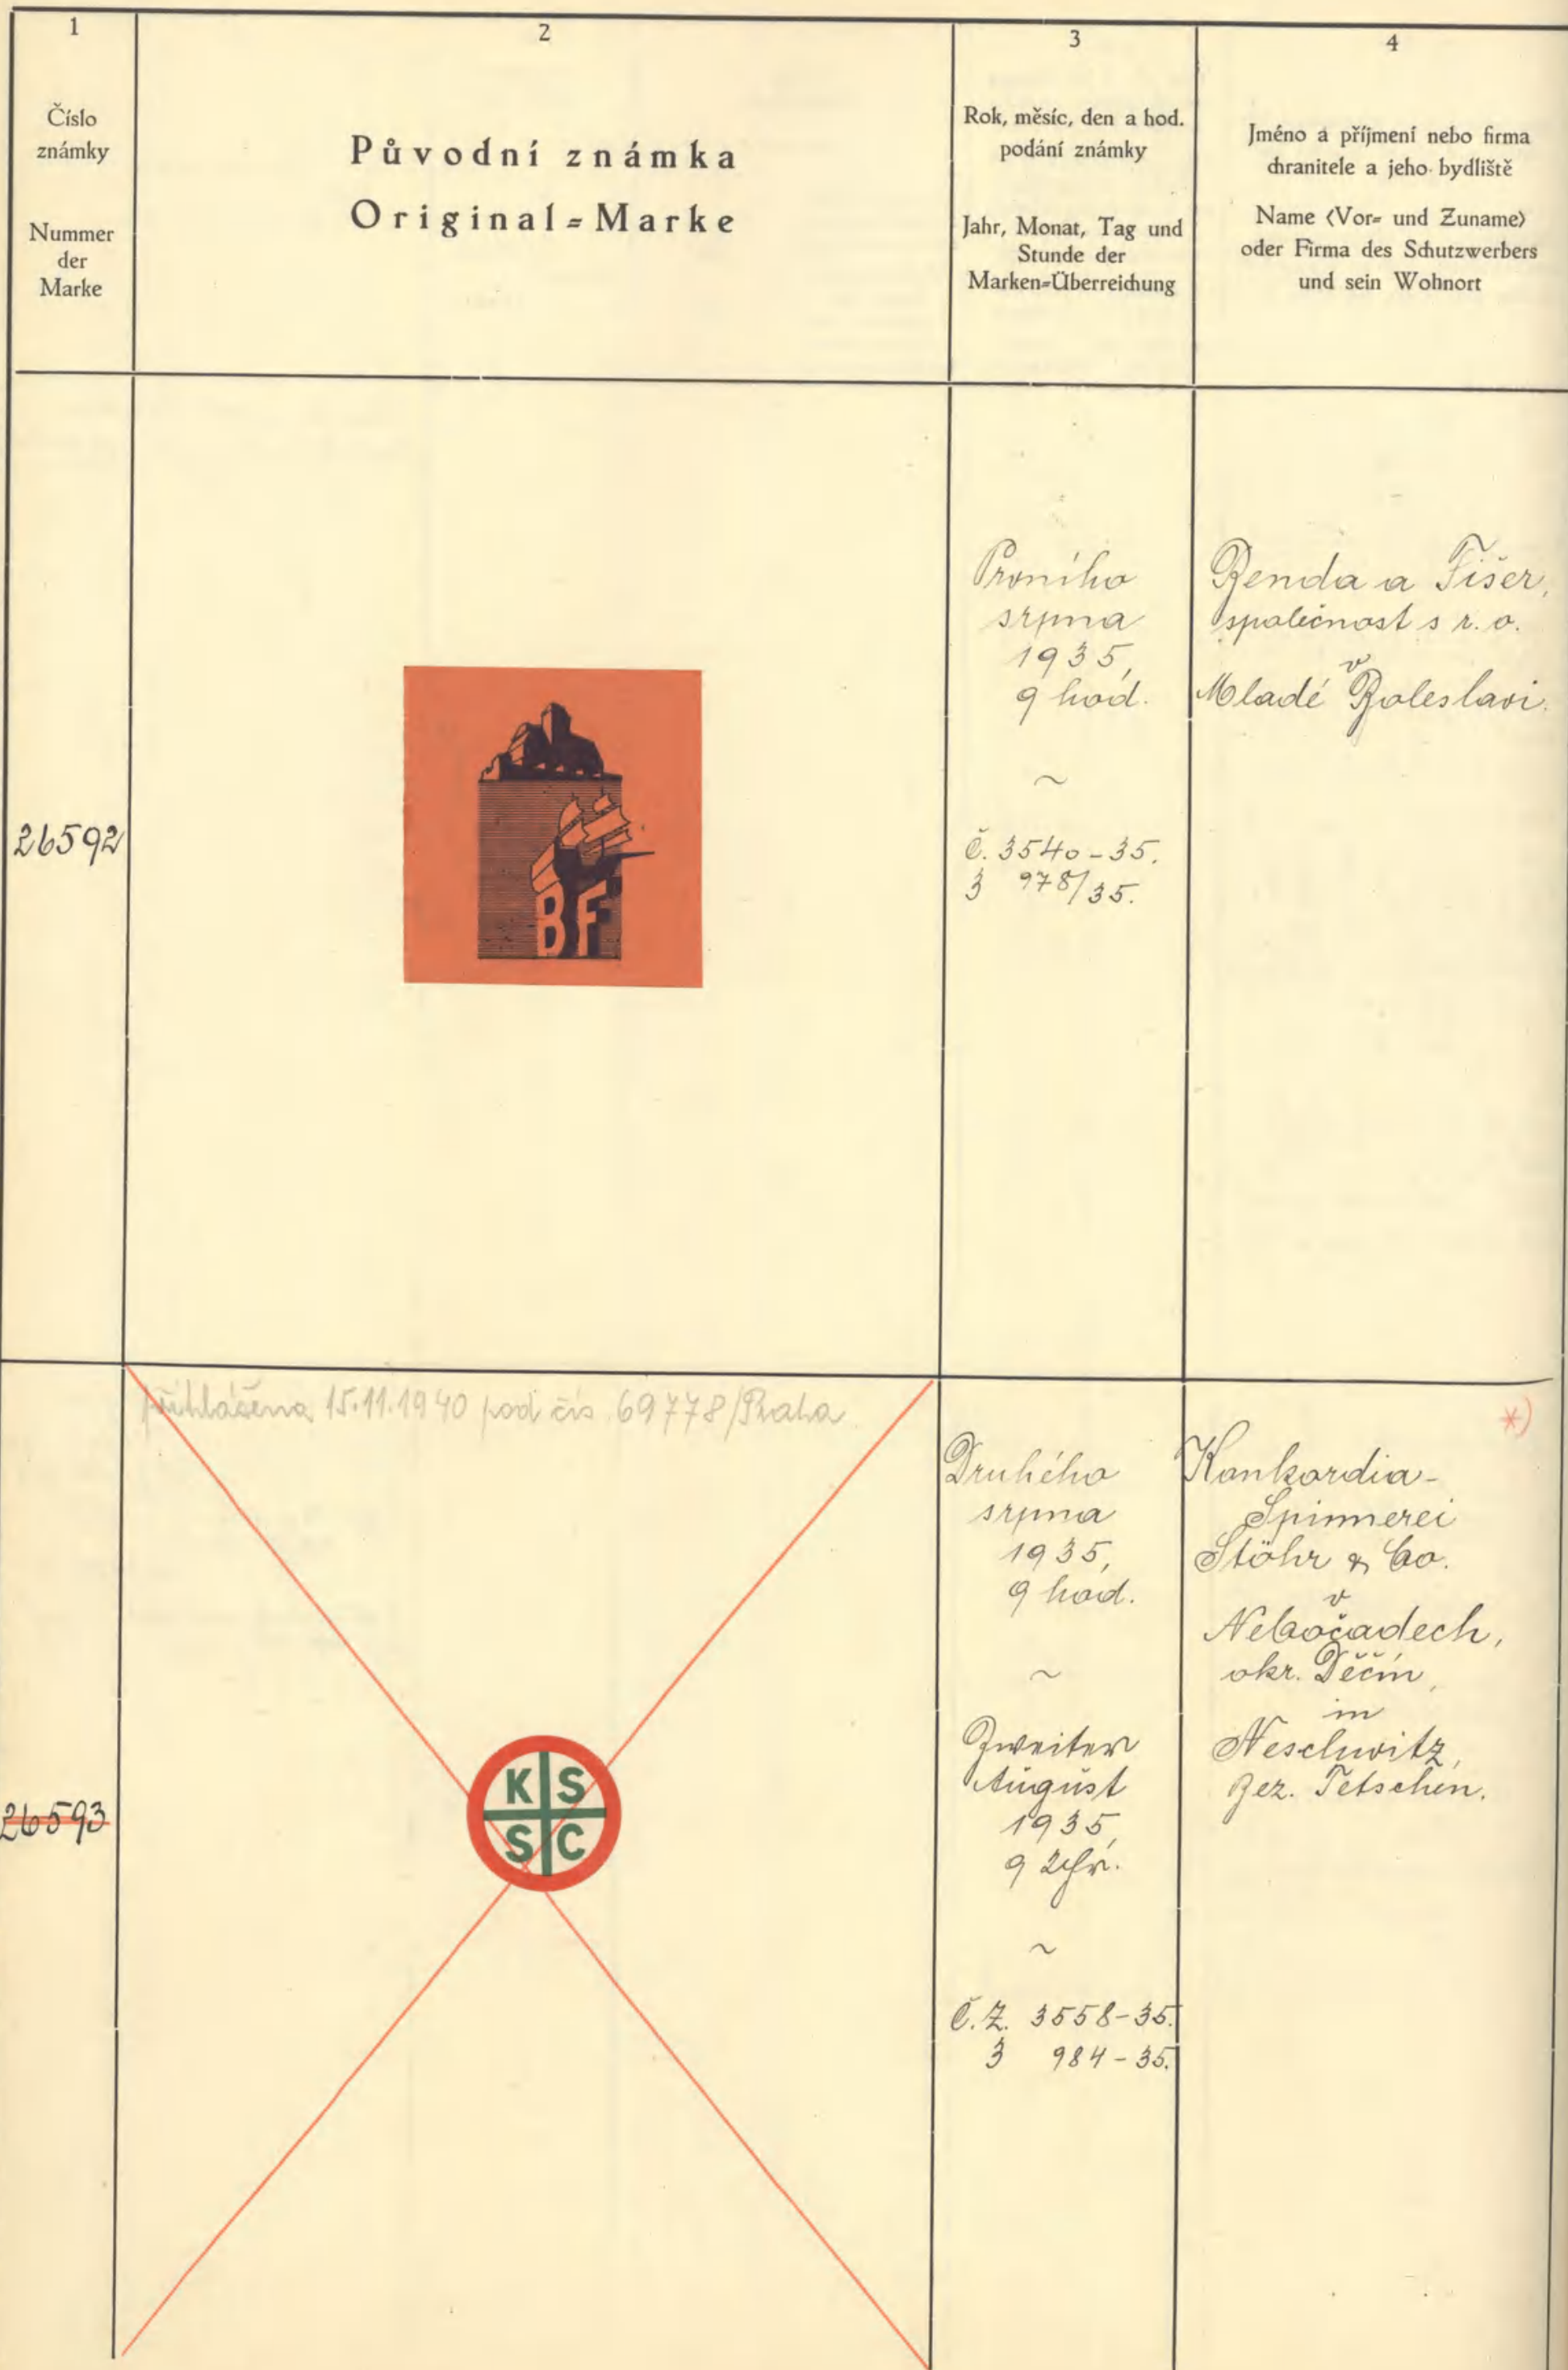 1
Číslo
známky
Nummer
der
Marke
2
Původní známka
Original=Marke
3
Rok, měsíc, den a hod.
podání známky
Jahr, Monat, Tag und
Stunde der
Marken=Überreichung
4
Jméno a příjmení nebo firma
chranitele a jeho bydliště
Name (Vor= und Zuname)
oder Firma des Schutzwerbers
und sein Wohnort
26592
BF
Prvního
srpna
1935,
9 hod.
~
Č. 3540-35.
3 978/35.
Benda a Fišer,
společnost s r. o.
v
Mladé Boleslavi.
26593
přihlášena 15.11.1940 pod čís. 69778/Praha
K S
S C
Druhého
srpna
1935,
9 hod.
~
Zweiter
August
1935,
9 Uhr.
~
Č.Z. 3558-35.
3 984-35.
*)
Konkordia-
Spinnerei
Stöhr & Co.
v
Nebočadech,
okr. Děčín,
in
Neschwitz,
Bez. Tetschen.